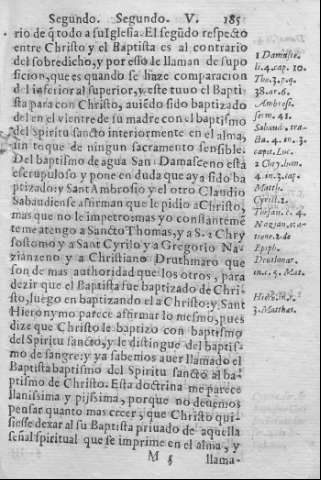 Segundo. Segundo. V. 185
rio de q̃ todo a su Iglesia. El segũdo respecto
entre Christo y el Baptista es al contrario
del sobredicho, y por esso le llaman de supo
sicion, que es quando se haze comparacion
del inferior al superior, y este tuuo el Bapti
sta para con Christo, auiẽdo sido baptizado
del en el vientre de su madre con el baptismo
del Spiritu sancto interiormente en el alma,
sin toque de ningun sacramento sensible.
Del baptismo de agua San Damasceno està
escrupuloso y pone en duda que aya sido ba
ptizado: y Sant Ambrosio y el otro Claudio
Sabaudiense afirman que le pidio a Christo,
mas que no le impetro: mas yo constantemẽ
te me atengo a Sancto Thomas, y a S. Chry
sostomo y a Sant Cyrillo y a Gregorio Na-
zianzeno y a Christiano Druthmaro que
son de mas authoridad que los otros, para
dezir que el Baptista fue baptizado de Chri-
sto, luego en baptizando el a Christo: y Sant
Hieronymo parece afirmar lo mesmo, pues
dize que Christo le baptizo con baptismo
del Spiritu sancto, y le distingue del baptis-
mo de sangre: y ya sabemos auer llamado el
Baptista baptismo del Spiritu sancto al ba-
ptismo de Christo. Esta doctrina me parece
llanissima y pijssima, porque no deuemos
pensar quanto mas creer, que Christo qui-
siesse dexar al su Baptista priuado de aquella
señal spiritual que se imprime en el alma, y
M 5 llama-
1 Damasce.
li. 4. cap. 10.
Tho. 3. p. q.
38. ar. 6.
Ambros.
serm. 41.
Sabaud. tra-
cta. 4. in. 3.
capit. Luc.
2 Chry. hom.
4. in. 3. cap.
Matth.
Cyrill. 2.
4.
Nazian.
2. de
Epiph.
Druthmar.
in. c. 5. Mat.
3. Matthæi.